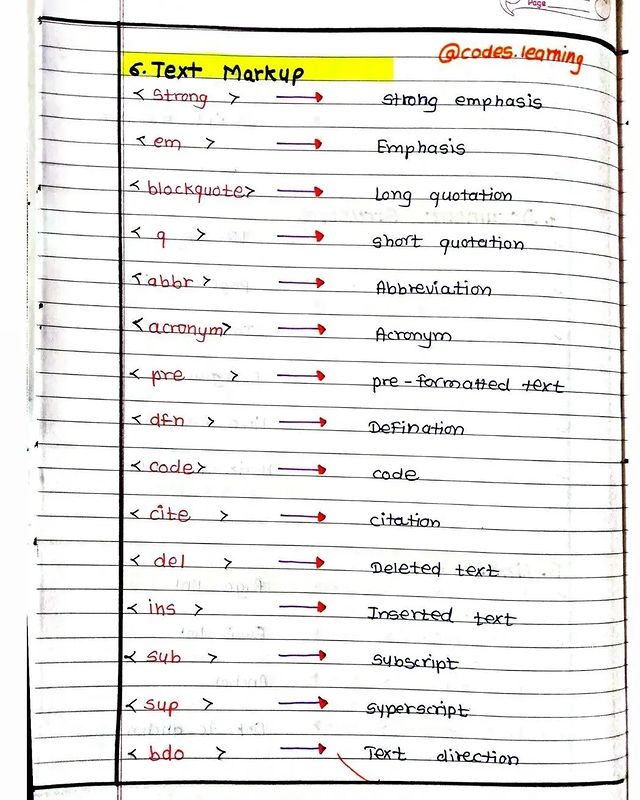 Page
@codes.learning
6. Text Markup
< strong > → strong emphasis
< em > → Emphasis
< blockquote> → Long quotation
< q > → short quotation
< abbr > → Abbreviation
< acronym> → Acronym
< pre > → pre-formatted text
< dfn > → Defination
< code> → code
< cite > → citation
< del > → Deleted text
< ins > → Inserted text
< sub > → subscript
< sup > → syperscript
< bdo > → Text direction